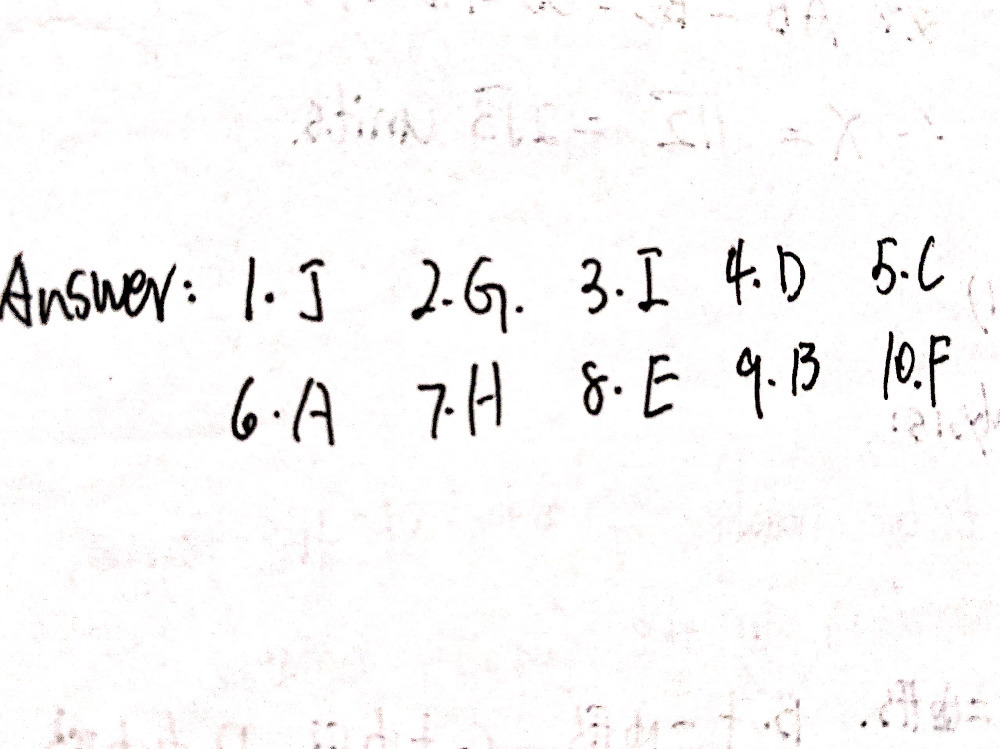 Answer: 1. J 2. G. 3. I 4. D 5. C
6. A 7. H 8. E 9. B 10. F